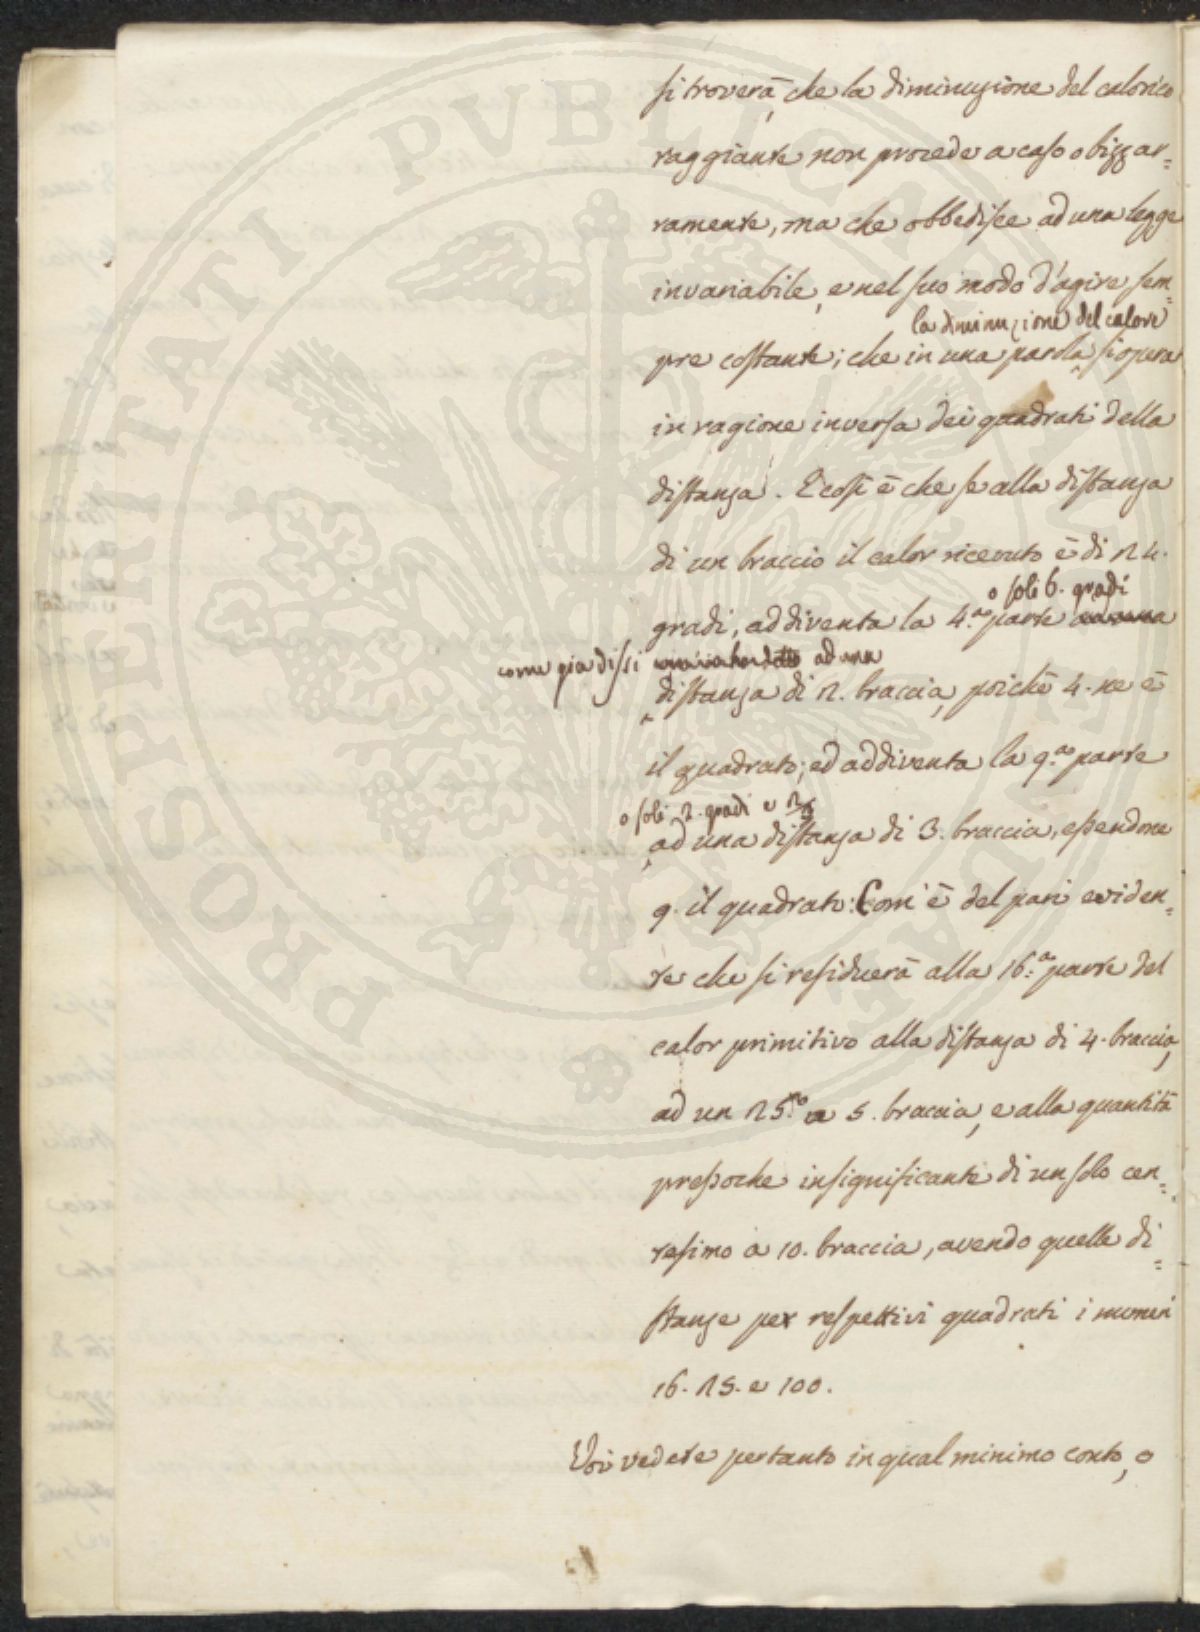 si troverà, che la diminuzione del calorico
raggiante non procede a caso o bizzar=
ramente, ma che obbedisce ad una legge
invariabile, e nel suo modo d'agire sem=
la diminuzione del calore
pre costante; che in una parola si opera
in ragione inversa dei quadrati della
distanza. E così è che se alla distanza
di un braccio il calor ricevuto è di 24.
o soli 6. gradi
gradi, addiventa la 4.ta parte
come già dissi ad una
distanza di 2. braccia, poichè 4. ne è
il quadrato; ed addiventa la 9.na parte
o soli 2. gradi e 2/3
ad una distanza di 3. braccia, essendone
9. il quadrato: Com'è del pari eviden=
te che si residuerà alla 16.a parte del
calor primitivo alla distanza di 4. braccia,
ad un 25.mo a 5. braccia, e alla quantità
pressoche insignificante di un solo cen=
tesimo a 10. braccia, avendo quelle di=
stanze per respettivi quadrati i numeri
16. 25. e 100.
Voi vedete pertanto in qual minimo conto, o
PROSPERITATI PVBLICAE AVGENDAE